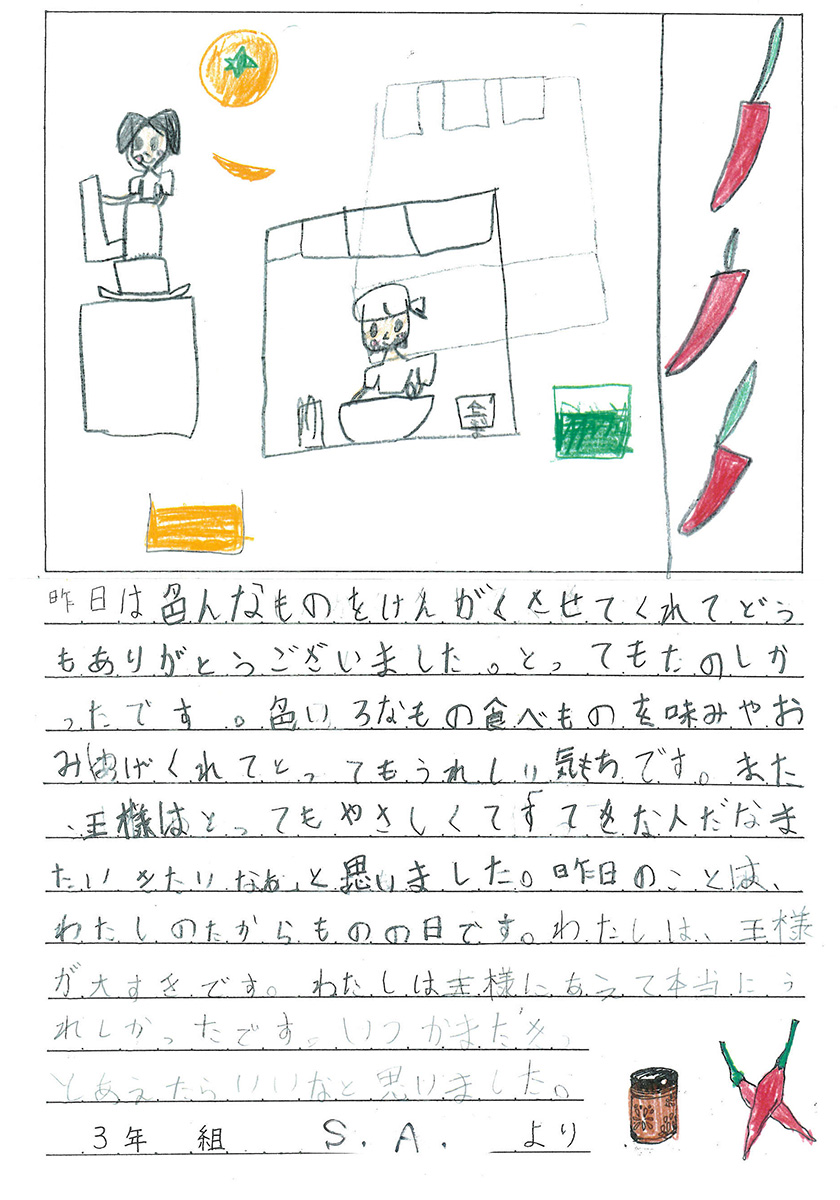 昨日は色んなものをけんがくさせてくれてどう
もありがとうございました。とってもたのしか
ったです。色いろなもの食べものを味みやお
みあげくれてとってもうれしい気もちです。また
、王様はとってもやさしくてすてきな人だなま
たいきたいなぁ、と思いました。昨日のことは、
わたしのたからものの日です。わたしは、王様
が大すきです。わたしは王様にあえて本当にう
れしかったです。いつかまたきっ
とあえたらいいなと思いました。
3年 組 S.A. より